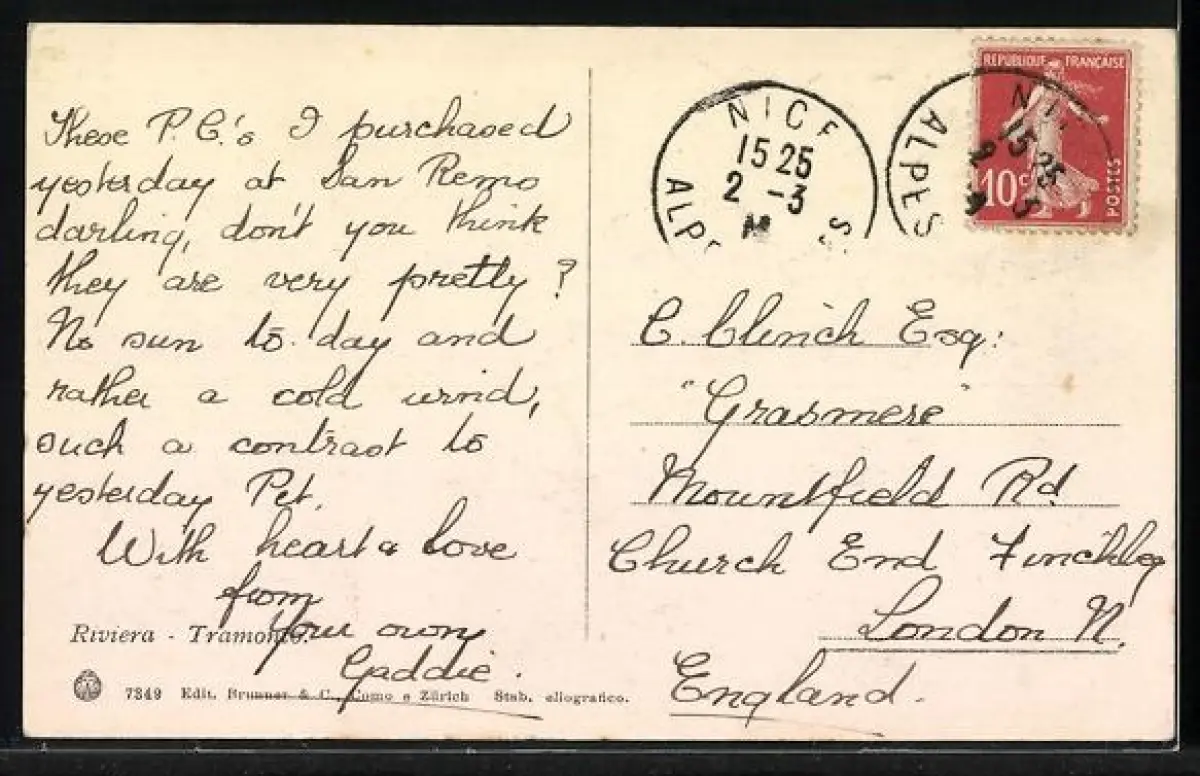 These P.C.'s I purchased
yesterday at San Remo
darling, don't you think
they are very pretty?
No sun to day and
rather a cold wind,
such a contrast to
yesterday Pet.
With heart & love
from
Your own
Gaddie.
Riviera - Tramonto.
7349 Edit. Brunner & C., Como e Zürich Stab. eliografico.
NICE
15 25
2 -3
ALP
ALPES
NI
15 25
REPUBLIQUE FRANÇAISE
10c
POSTES
C. Clinch Esq:
"Grasmere"
Mountfield Rd
Church End Finchley
London N.
England.